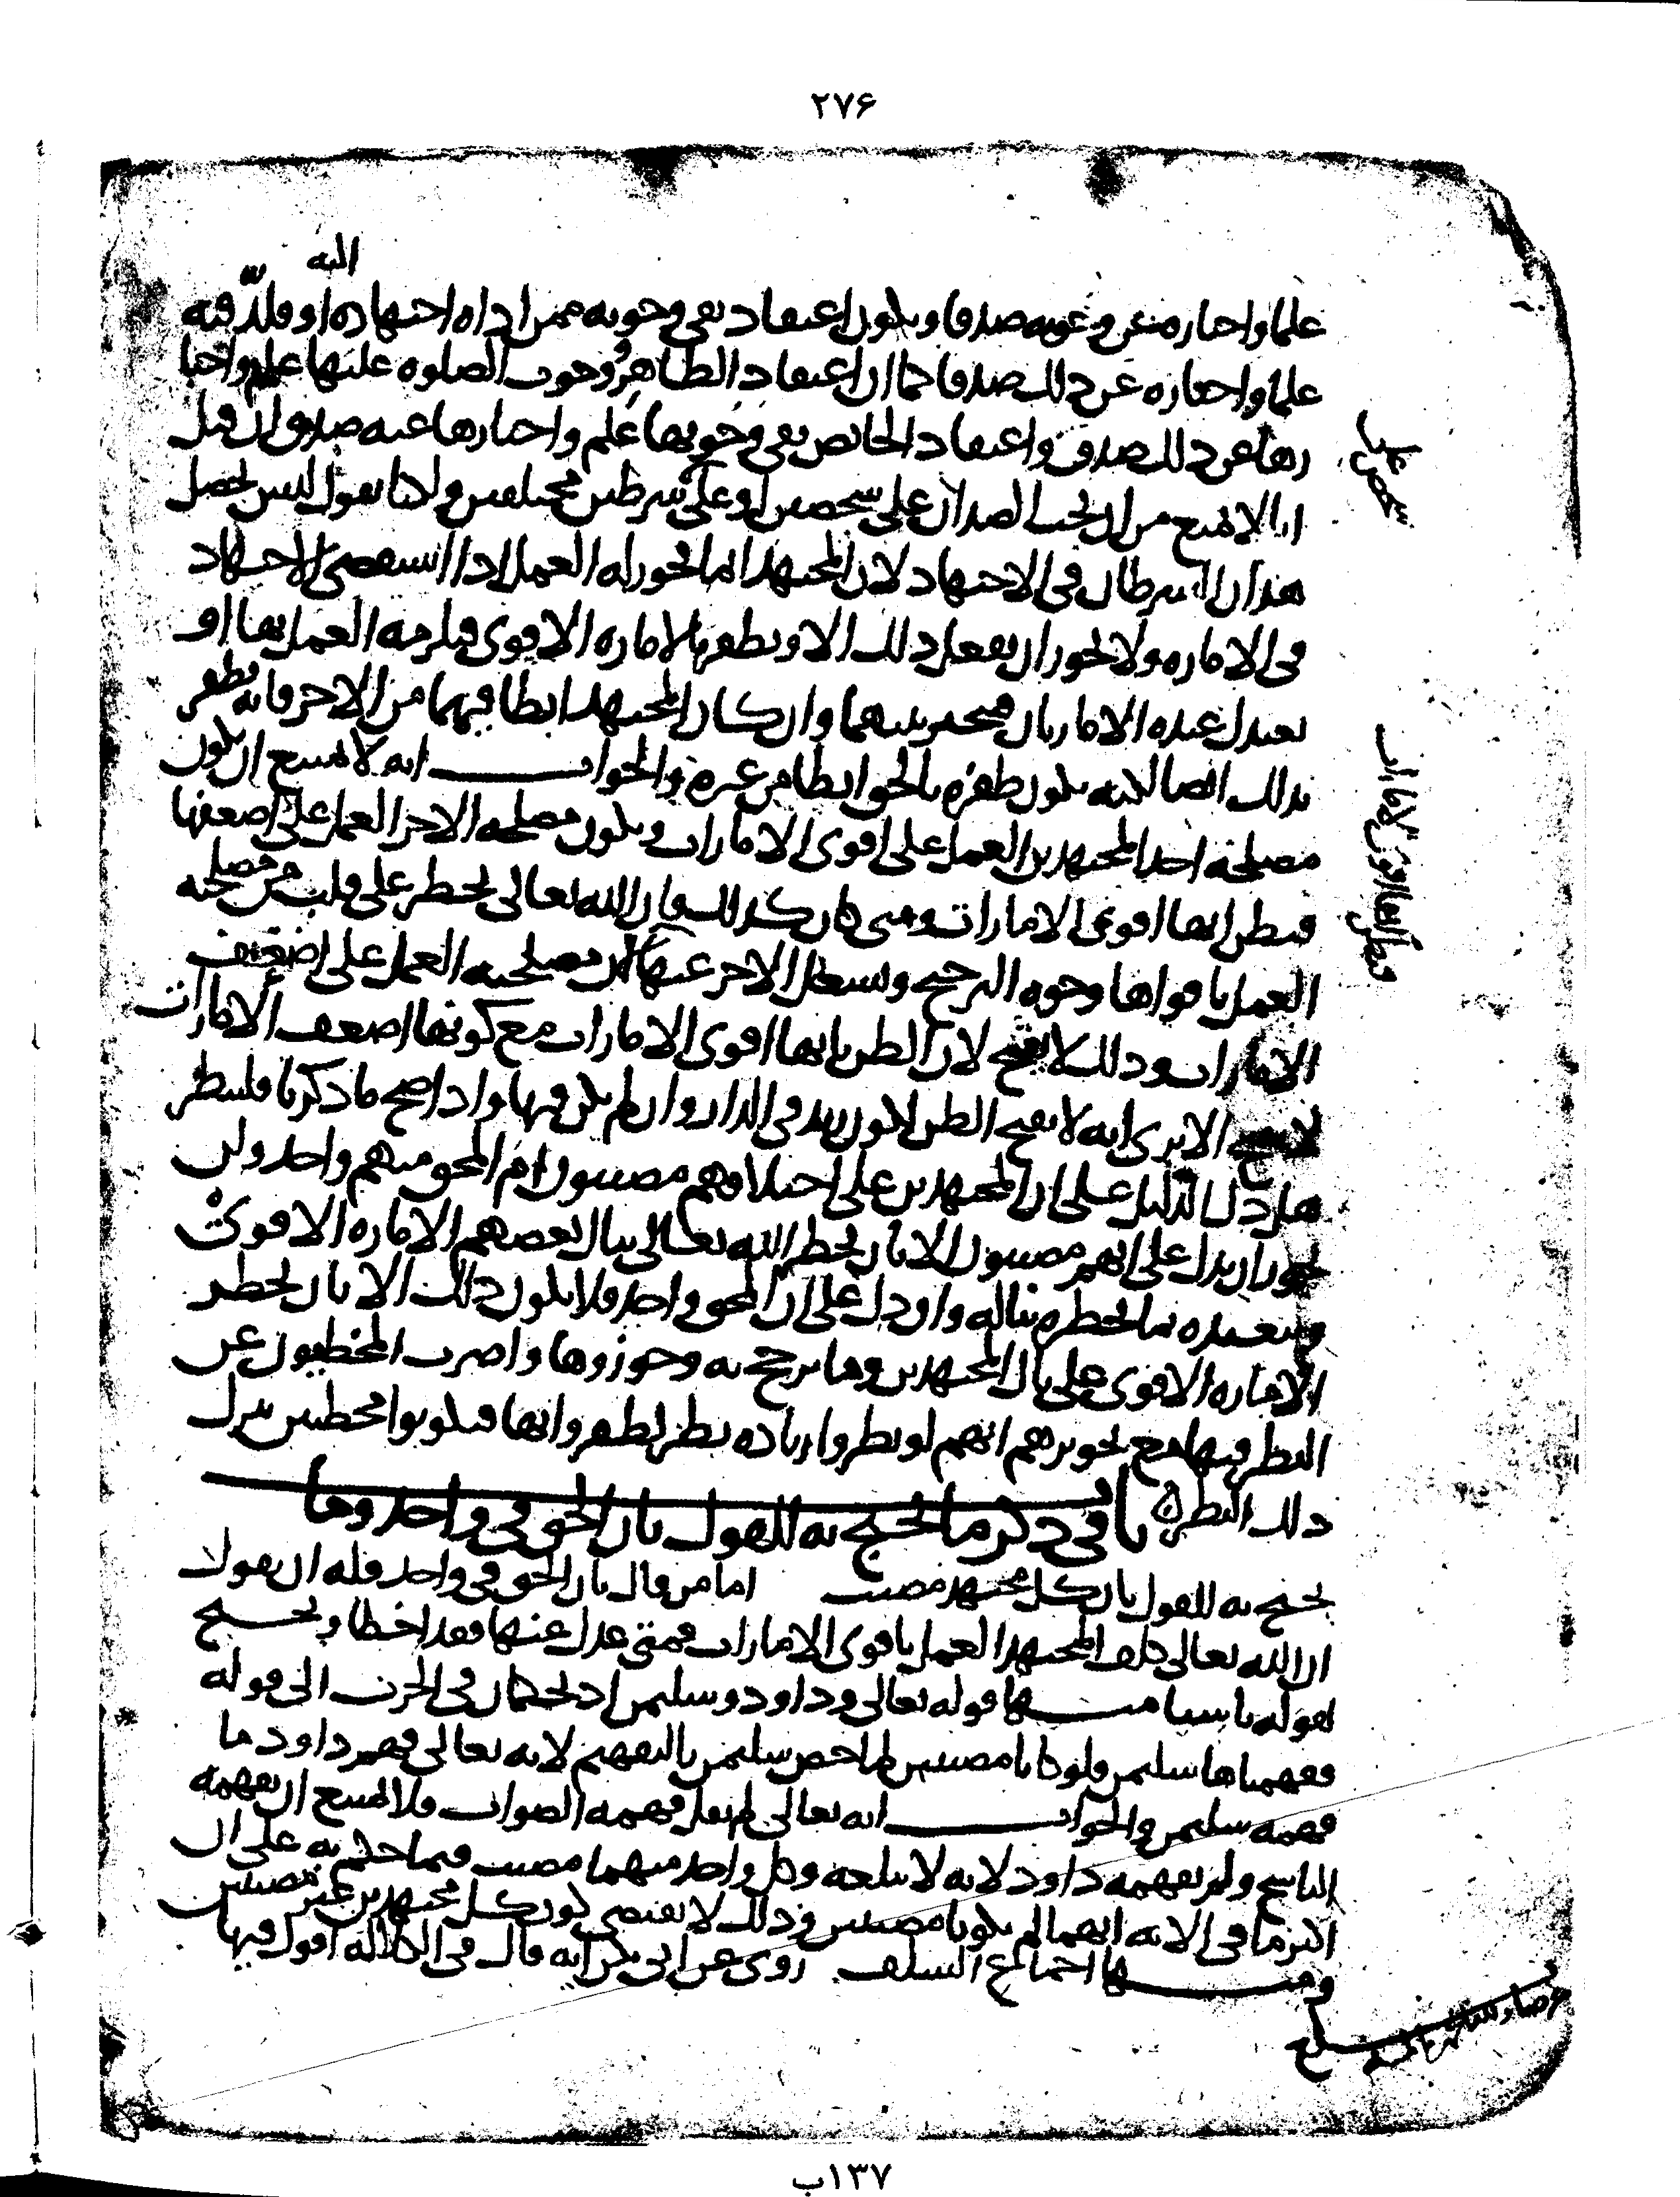 ٢٧۶
اليه
علما واخباره عن وجوبه صدقا ويكون اعتقاد نفي وجوبه ممن اداه اجتهاده او قلد فيه
علما واخباره عن ذلك صدقا كما ان اعتقاد الطاهر وجوب الصلوه عليها علم واخبا
رها عن ذلك صدق واعتقاد الحائض نفي وجوبها علم واخبارها عنه صدق ان قيل
انا لا نمنع من ان يجب الضدان على شخصين او على شرطين مختلفين ولكنا نقول ليس يحصل
هذان الشرطان في الاجتهاد لان المجتهد انما يجوز له العمل اذا استقصى الاجتهاد
في الاماره ولا يجوز ان يفعل ذلك الا ويظفر بالاماره الاقوى فيلزمه العمل بها او
تعتدل عنده الامارتان فيتخير بينهما وان كان المجتهد ابطا فيهما من الاخر فانه يظفر
بذلك ايضا لكنه يكون ظفره بالحق ابطا من غيره والجواب انه لا يمتنع ان يكون
مصلحه احد المجتهدين العمل على اقوى الامارات ويكون مصلحه الاخر العمل على اضعفها
فيظن انها اقوى الامارات ومتى كان كذلك فان الله تعالى يخطر على قلب من مصلحته
العمل باقواها وجوه الترجيح ويشغل الاخر عنها لان مصلحته العمل على اضعف
الامارات وذلك لا يقبح لان الظن بانها اقوى الامارات مع كونها اضعف الامارات
لا يقبح الا ترى انه لا يقبح الظن لكون زيد في الدار وان لم يكن فيها واذا صح ما ذكرنا فلينظر
هل دل الدليل على ان المجتهدين على اختلافهم مصيبون ام المحق منهم واحد وليس
يجوز ان يدل على انهم مصيبون الا بان يخطر الله تعالى ببال بعضهم الاماره الاقوى
ويتعبده بما يخطره بباله وان دل على ان المحق واحد فلا يكون ذلك الا بان يخطر
الاماره الاقوى على بال المجتهدين وما يرجح به وجوزوها واضرب المخطيون عن
النظر فيها مع تجويزهم انهم لو نظروا زياده نظر لظفروا بها فيكونوا مخطيين بترك
ذلك النظر باب في ذكر ما يحتج به للقول بان الحق في واحد وما
يحتج به للقول بان كل مجتهد مصيب اما من قال بان الحق في واحد فله ان يقول
ان الله تعالى كلف المجتهد العمل باقوى الامارات فمتى عدل عنها فقد اخطا ويحتج
لقوله باشيا منها قوله تعالى وداود وسليمن اذ يحكمان في الحرث الى قوله
ففهمناها سليمن فلو كانا مصيبين لما خص سليمن بالتفهيم لانه تعالى فهم داود ما
فهمه سليمن والجواب انه تعالى لم يقل فهمه الصواب فلا يمتنع ان يفهمه
الناسخ ولم يفهمه داود لانه لا يبلغه وكل واحد منهما مصيب فيما حكم به على ان
اكثر ما في الايه انهما لم يكونا مصيبين وذلك لا يقتضي كون كل مجتهدين غير مصيبين
ومنها اجماع السلف روي عن ابي بكر انه قال في الكلاله اقول فيها
بلغ
١٣٧ب